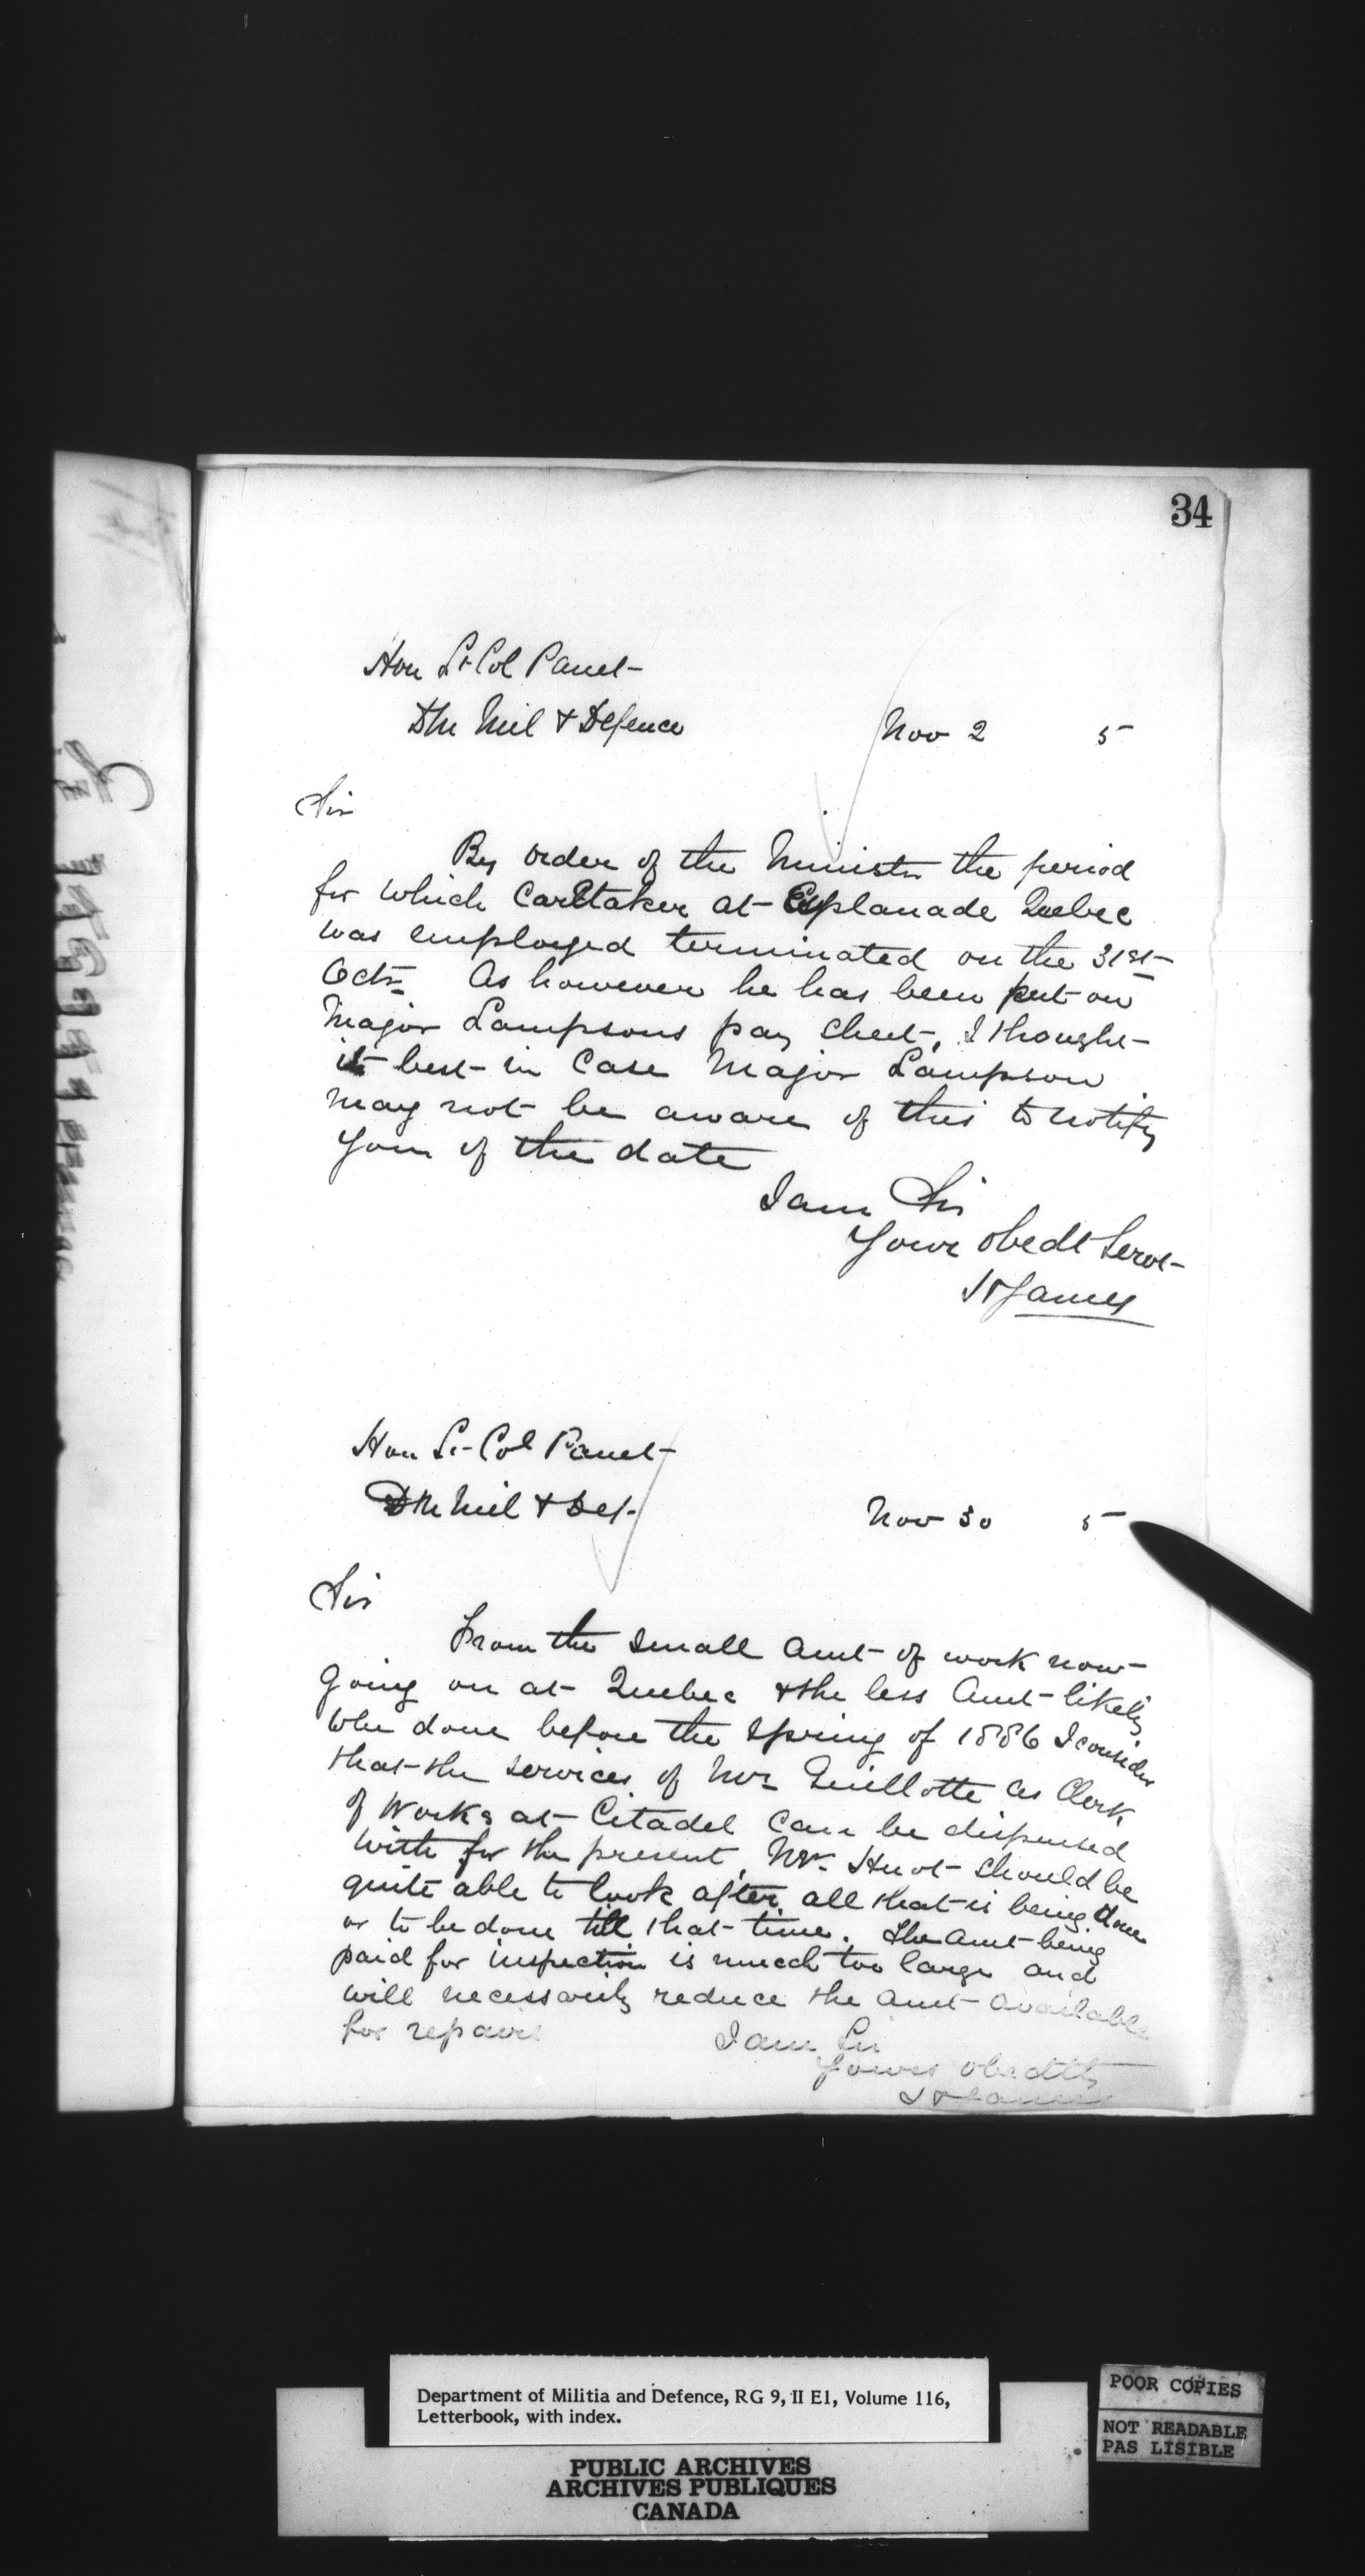 34
Hon Lt Col Panet
DM Mil & Defence
Nov 2 5
Sir
By order of the Minister the period
for which Caretaker at Esplanade Quebec
was employed terminated on the 31st
Octr As however he has been put on
Major Lampsons pay sheet, I thought
it best in case Major Lampson
may not be aware of this to notify
you of the date
I am Sir
Your obedt Servt
James
Hon Lt Col Panet
DM Mil & Def
Nov 30 5
Sir
From the small amt of work now
going on at Quebec & the less amt likely
to be done before the spring of 1886 I consider
that the services of Mr Guillotte as Clerk
of Works at Citadel can be dispensed
with for the present, Mr Huot should be
quite able to look after all that is being done
or to be done till that time. The amt being
paid for inspection is much too large and
will necessarily reduce the amt available
for repairs
I am Sir
Yours obedtly
James
Department of Militia and Defence, RG 9, II E1, Volume 116,
Letterbook, with index.
PUBLIC ARCHIVES
ARCHIVES PUBLIQUES
CANADA
POOR COPIES
NOT READABLE
PAS LISIBLE